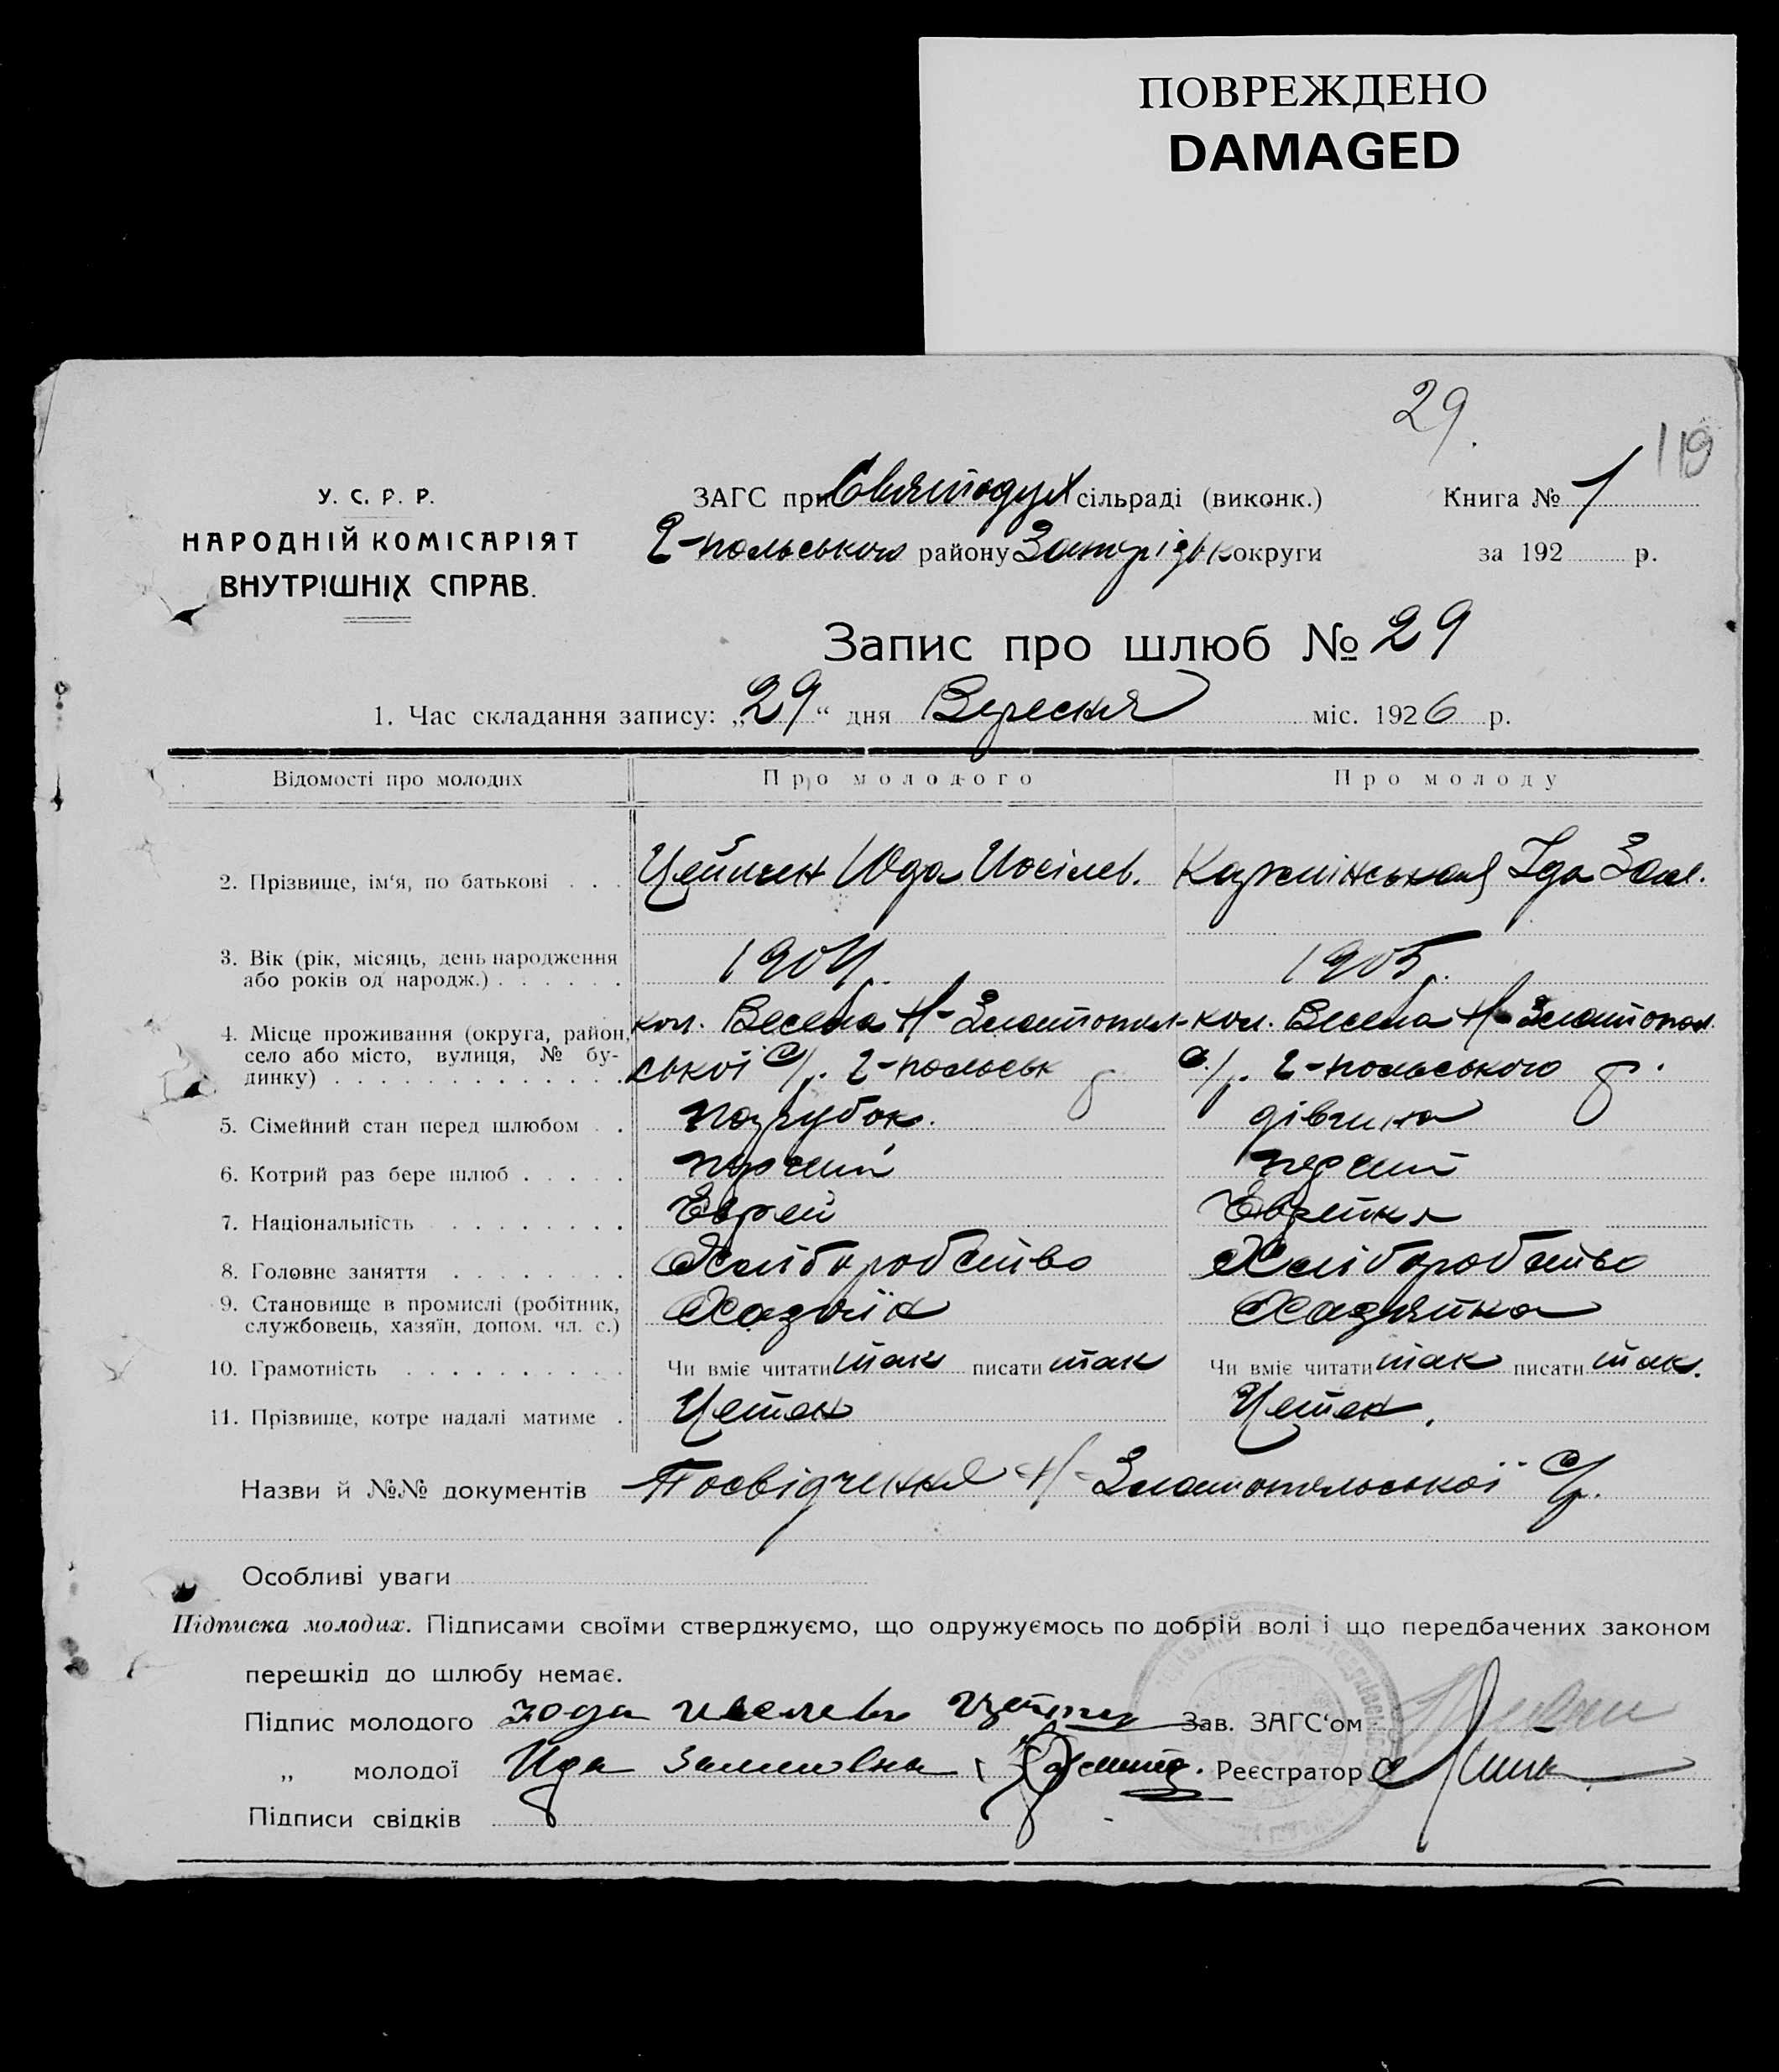 ПОВРЕЖДЕНО
DAMAGED
29.
119
У. С. Р. Р.
НАРОДНІЙ КОМІСАРІЯТ
ВНУТРІШНІХ СПРАВ.
ЗАГС при Святодух сільраді (виконк.)
Книга № 1
2-польського району Запорізьк округи
за 192 р.
Запис про шлюб № 29
1. Час складання запису: „29“ дня Вересня міс. 1926 р.
Відомості про молодих
Про молодого
Про молоду
2. Прізвище, ім'я, по батькові . . .
Юда
Іда Зал.
3. Вік (рік, місяць, день народження
або років од народж.) . . . . . .
1904
1905
4. Місце проживання (округа, район,
село або місто, вулиця, № бу-
динку) . . . . . . . . . . . . .
кол. Весела Н-Златопол-
ської С/р. 2-польськ
кол. Весела Н-Златопол.
С/р. 2-польського
5. Сімейний стан перед шлюбом . .
парубок.
дівчина
6. Котрий раз бере шлюб . . . . .
перший
перший
7. Національність . . . . . . . . .
Еврей
Еврейка
8. Головне заняття . . . . . . . .
Хліборобство
Хліборобство
9. Становище в промислі (робітник,
службовець, хазяїн, допом. чл. с.)
Хазяїн
Хазяйка
10. Грамотність . . . . . . . . . .
Чи вміє читати так писати так
Чи вміє читати так писати так.
11. Прізвище, котре надалі матиме .
Назви й №№ документів Посвідчення Н-Златопольської С/р.
Особливі уваги
Підписка молодих. Підписами своїми стверджуємо, що одружуємось по добрій волі і що передбачених законом
перешкід до шлюбу немає.
Підпис молодого Юда
Зав. ЗАГС'ом
„ молодої Ида
Реєстратор
Підписи свідків